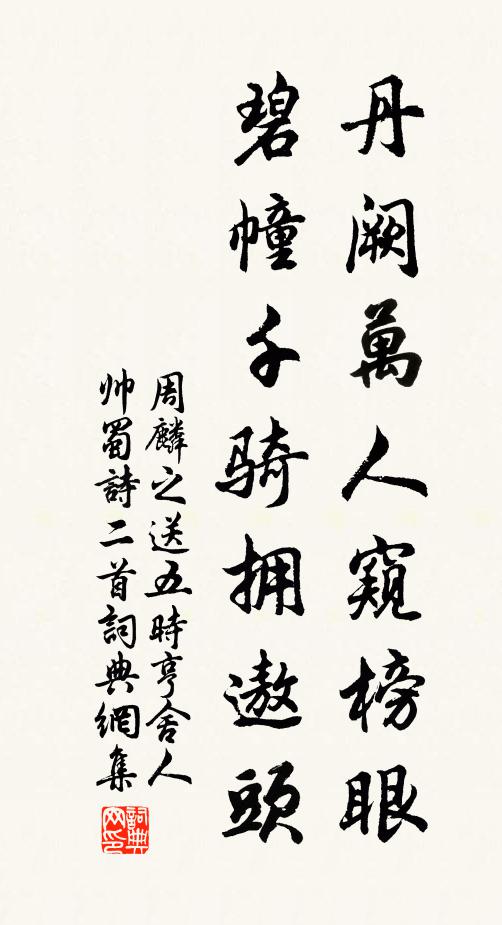 丹阙萬人窺榜眼
碧幢千骑拥遨頭
周麟之送五時亨舍人
帅蜀詩二首詞典網集
詞典
网印